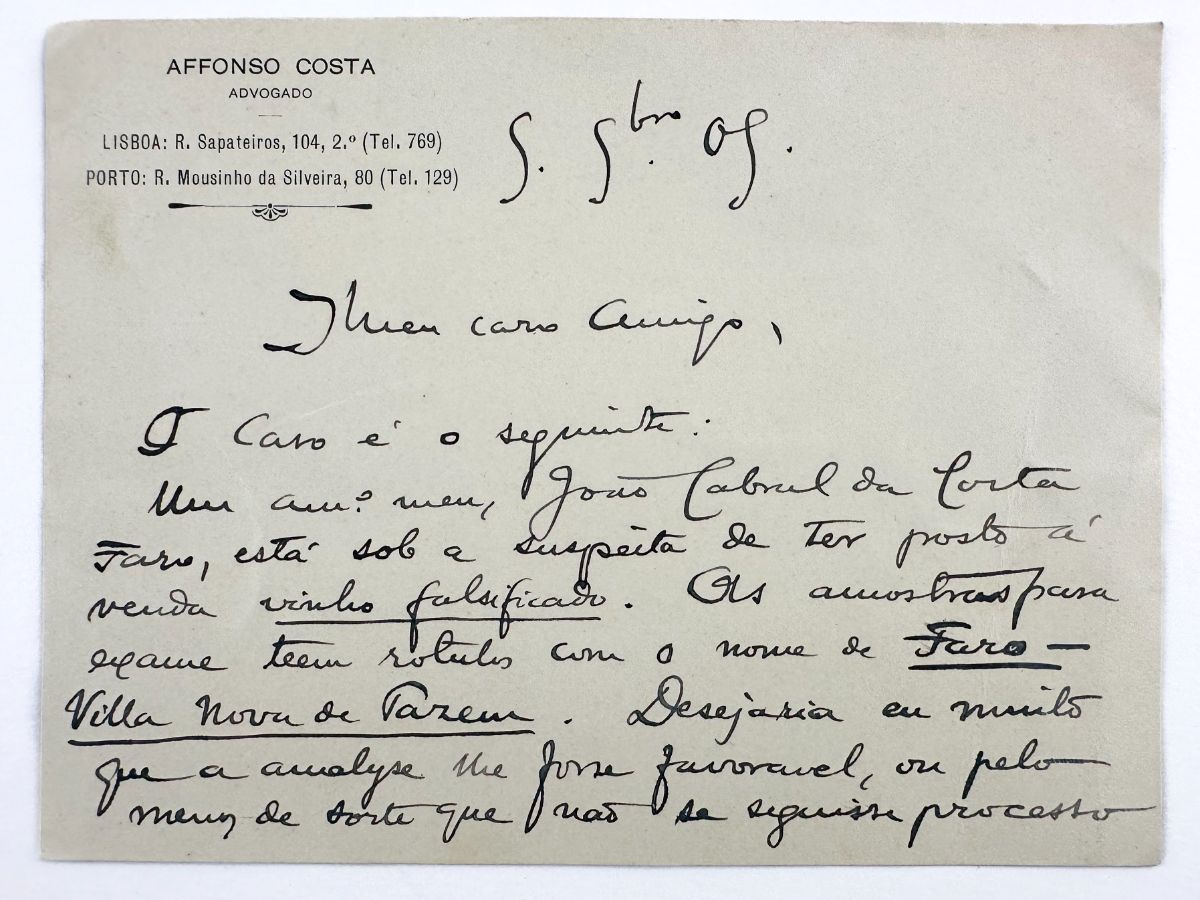 AFFONSO COSTA
ADVOGADO
LISBOA: R. Sapateiros, 104, 2.º (Tel. 769)
PORTO: R. Mousinho da Silveira, 80 (Tel. 129)
9. 9bro. 09.
Meu caro Amigo,
O caso é o seguinte:
Um am.º meu, João Cabral da Costa
Faro, está sob a suspeita de ter posto á
venda vinho falsificado. As amostras para
exame teem rotulos com o nome de Faro–
Villa Nova de Tazem. Desejaria eu muito
que a analyse lhe fosse favoravel, ou pelo
menos de sorte que não se seguisse processo